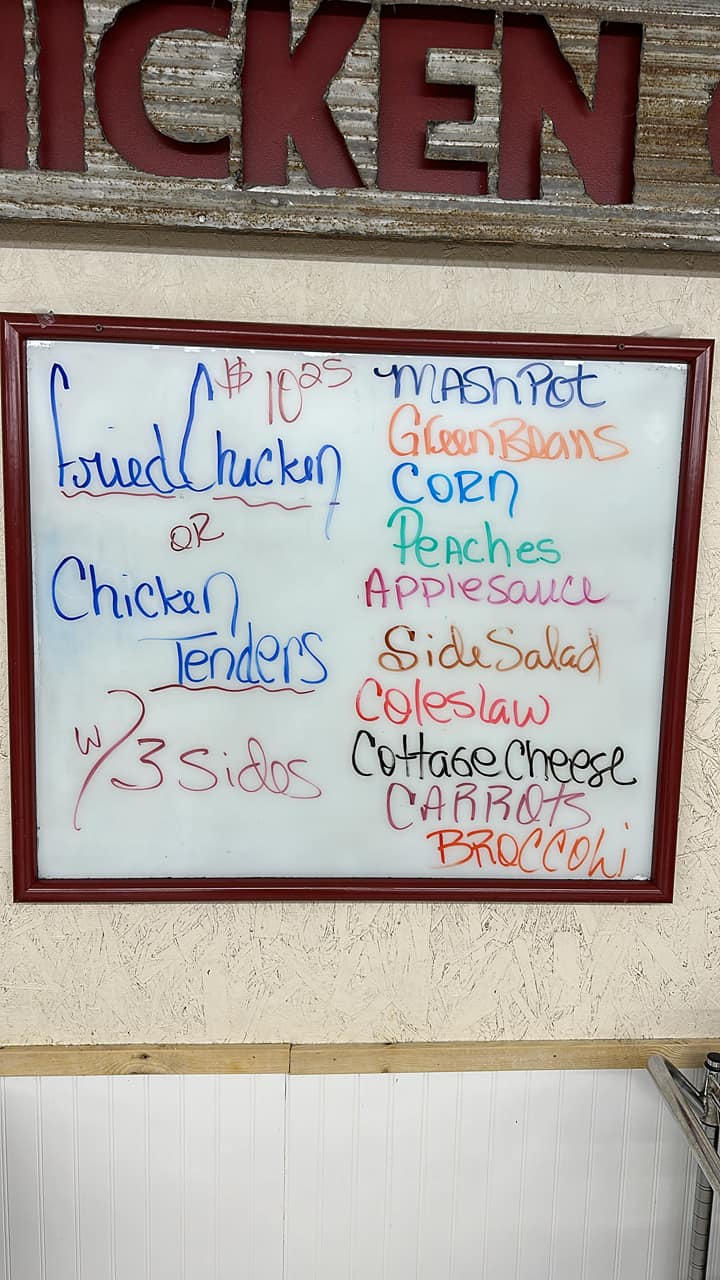 HICKEN
$10.25
Fried Chicken
OR
Chicken
Tenders
w/3 sides
MASh Pot
Green Beans
CORN
Peaches
Applesauce
Side Salad
Coleslaw
Cottage Cheese
CARROts
BROCCOLi